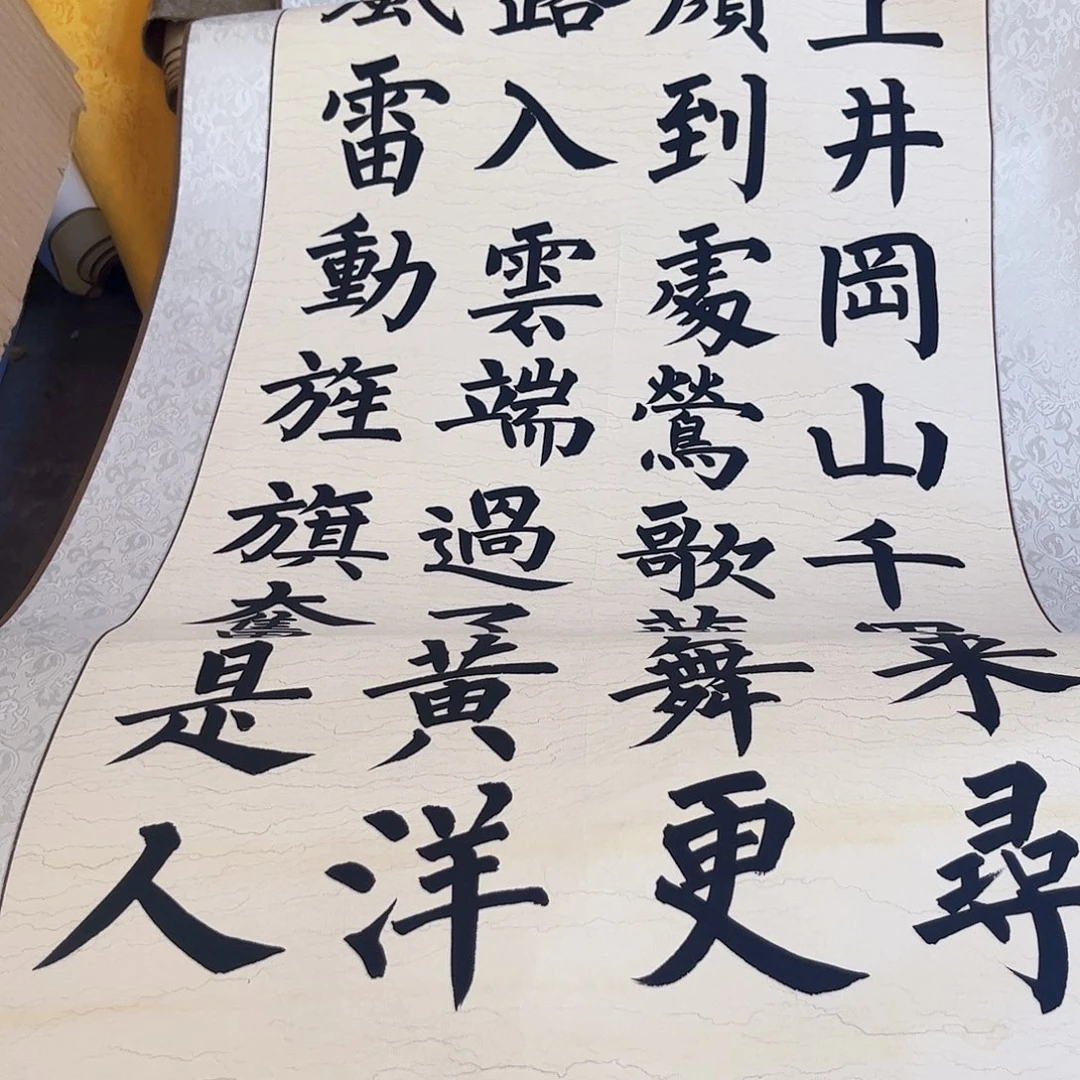 上井岡山千来尋
顏到處鶯歌舞更
路入雲端過了黃洋
風雷動旌旗奮是人